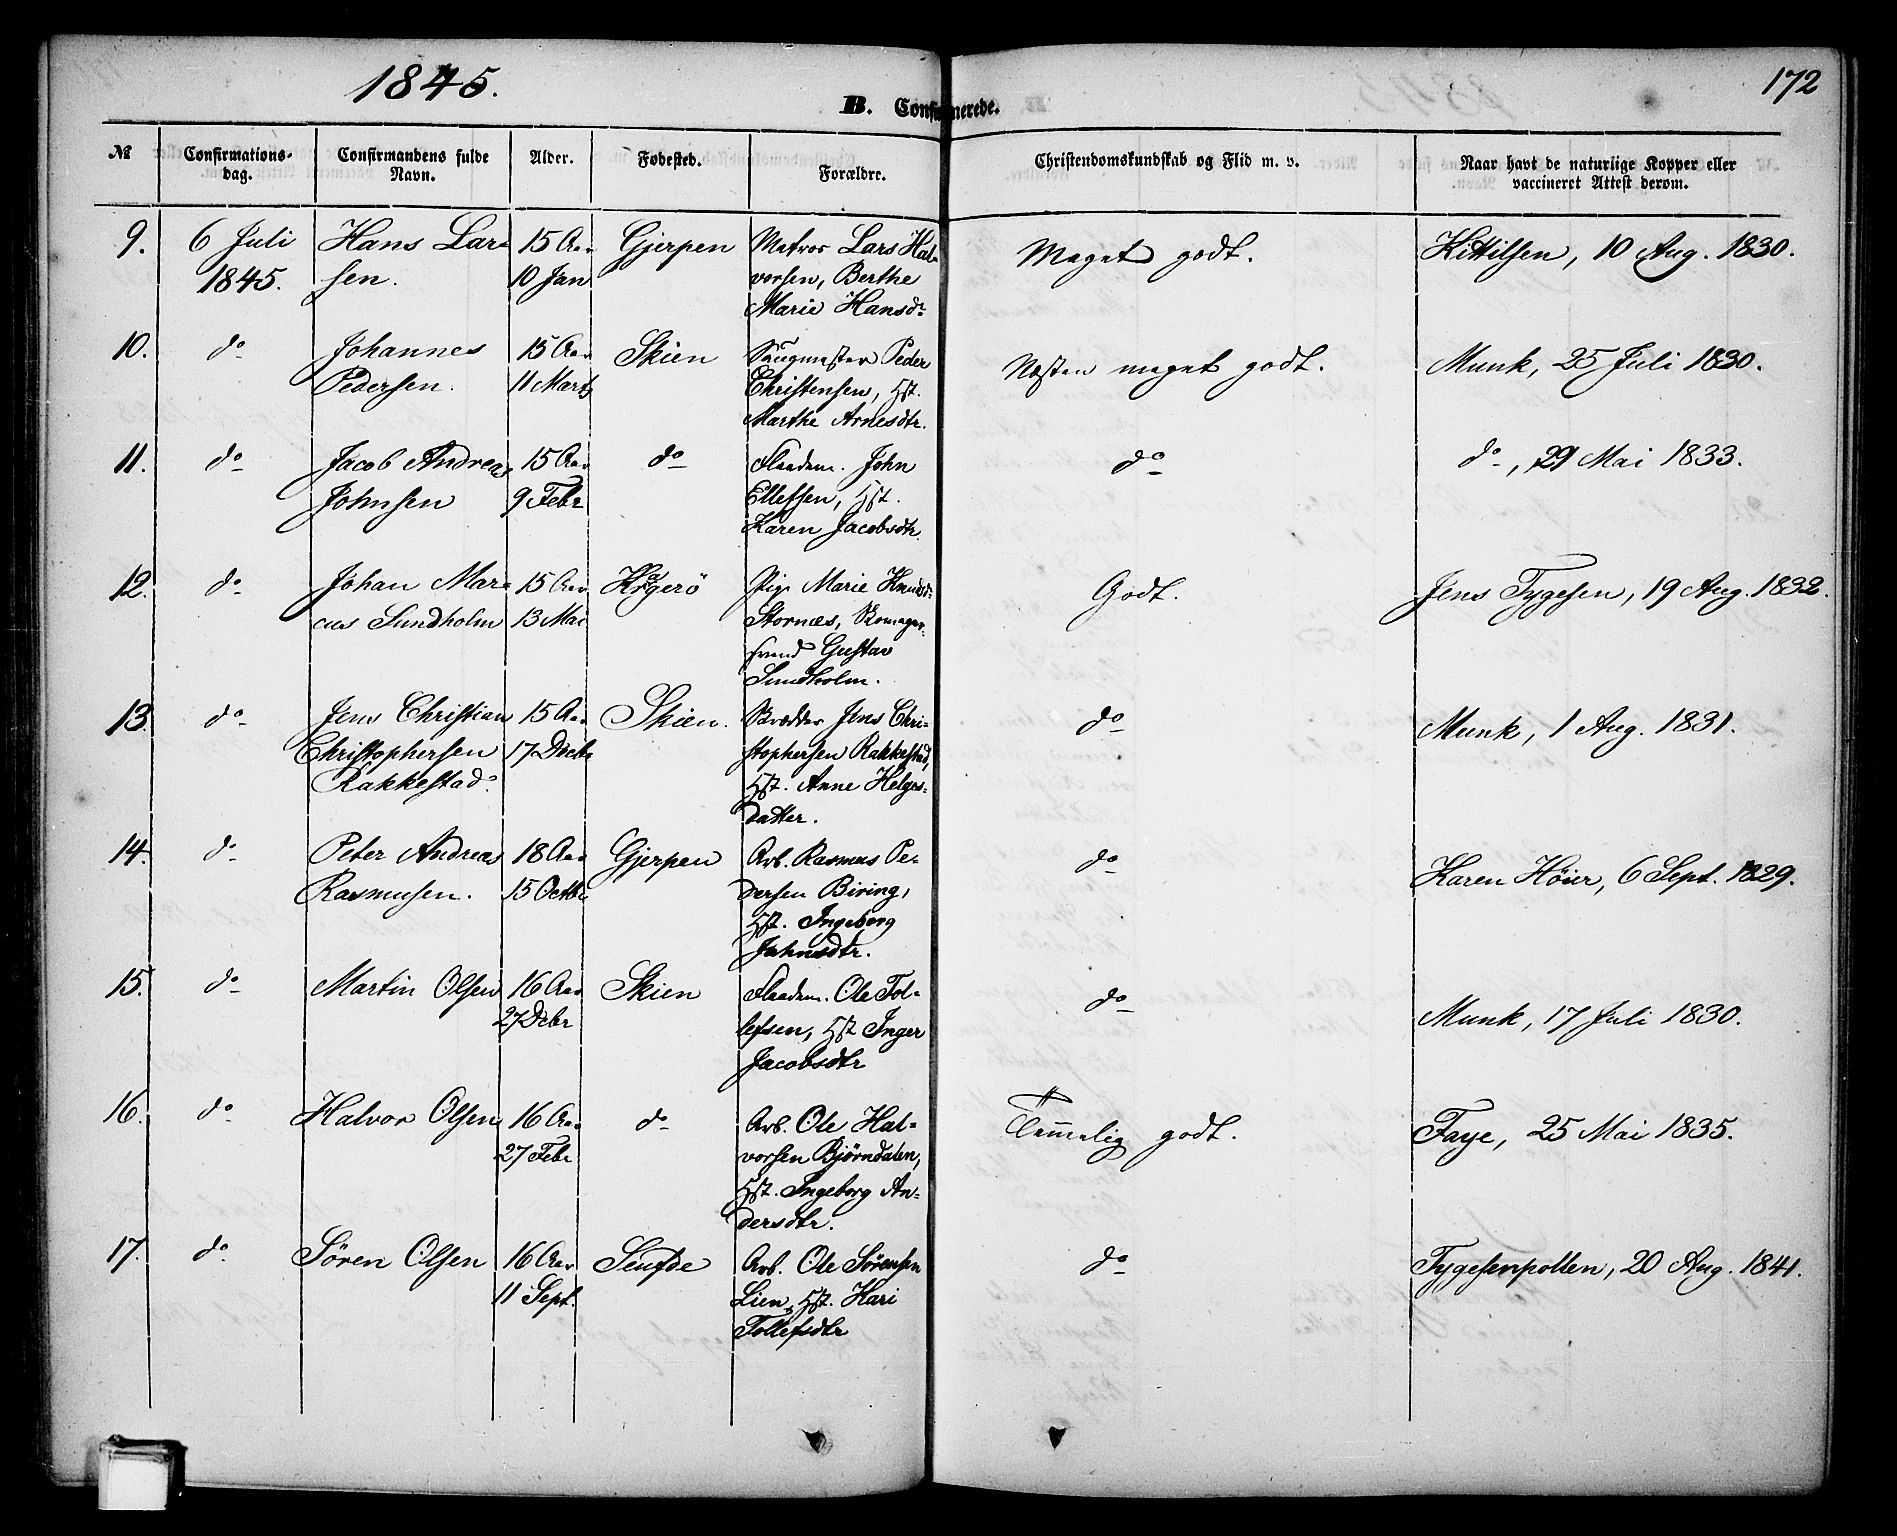 1845.
B. Confirmerede.
172
№
Confirmations-
dag.
Confirmandens fulde
Navn.
Alder.
Fødested.
Forældre.
Christendomskundskab og Flid m. v.
Naar havt de naturlige Kopper eller
vaccineret Attest derom.
9. 6 Juli Hans Lar- 15 Aar Gjerpen Matros Lars Hal- Meget godt. Kittilsen, 10 Aug. 1830.
1845. sen. 10 Jan vorsen, Berthe
Marie Hansd:
10. do Johannes 15 Aar Skien Saugmester Peder Næsten meget godt. Munk, 25 Juli 1830.
Pedersen. 11 Marts Christensen, Hst.
Marthe Arnesdtr.
11. do Jacob Andreas 15 Aar do Flaadem. John do do, 29 Mai 1833.
Johnsen 9 Febr Ellefsen, Hst.
Karen Jacobsdtr.
12. do Johan Mar- 15 Aar Kragerö Pige Marie Knudsd: Godt. Jens Tygesen, 19 Aug. 1832.
cus Sundholm 13 Mai Stornæs, Skomager-
svend Gustav
Sundholm.
13. do Jens Christian 15 Aar Skien. Skrædder Jens Chri- do Munk, 1 Aug. 1831.
Christophersen 17 Decbr stophersen Rakkestad,
Rakkestad. Hst. Anne Helges-
datter.
14. do Peter Andreas 18 Aar Gjerpen Arb. Rasmus Pe- do Karen Höier, 6 Sept. 1829.
Rasmusen. 15 Octbr dersen Biring,
Hst. Ingeborg
Jahnsdtr.
15. do Martin Olsen 16 Aar Skien Flaadem. Ole Tol- do Munk, 17 Juli 1830.
27 Debr lefsen, Hst Inger
Jacobsdtr
16. do Halvor Olsen 16 Aar do Arb. Ole Hal- Temmelig godt. Faye, 25 Mai 1835.
27 Febr vorsen Björndalen,
Hst. Ingeborg An-
dersdtr.
17. do Sören Olsen 16 Aar Seufde Arb. Ole Sörensen do Tygesenpollen, 20 Aug. 1841.
11 Sept. Lien, Hst. Kari
Tollefsdtr